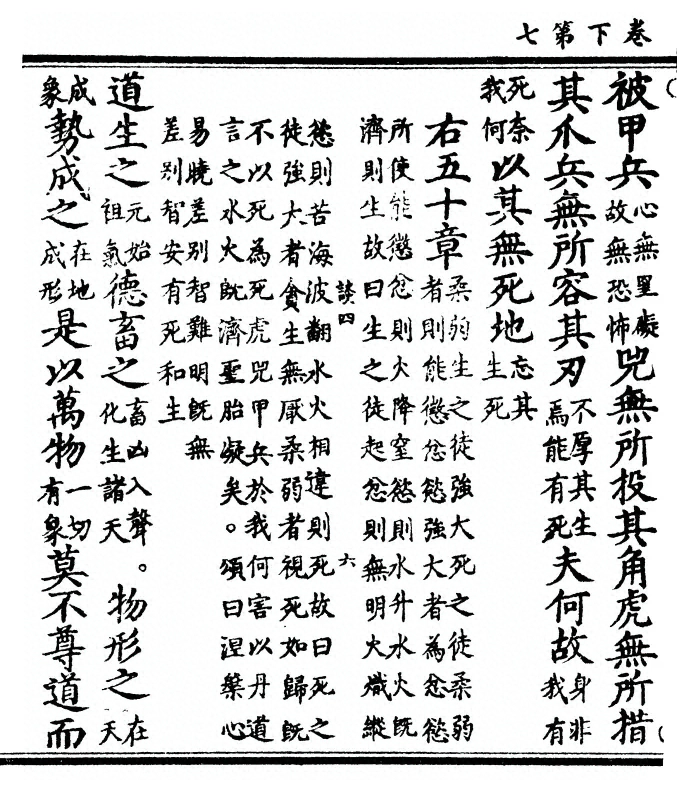 卷下第七
被甲兵心無罣礙故無恐怖兕無所投其角虎無所措
其爪兵無所容其刃不厚其生焉能有死夫何故身非我有
死奈我何以其無死地忘其生死
右五十章柔弱生之徒強大死之徒柔弱者則能懲忿慾強大者為忿慾
所使能懲忿則火降窒慾則水升水火既
濟則生故曰生之徒起忿則無明火熾縱
談四 六
慾則苦海波翻水火相違則死故曰死之
徒強大者貪生無厭柔弱者視死如歸既
不以死為死虎兕甲兵於我何害以丹道
言之水火既濟聖胎凝矣。頌曰涅槃心
易曉差別智難明既無
差別智安有死和生
道生之元始祖氣德畜之畜凶入聲。化生諸天物形之在天
成象勢成之在地成形是以萬物一切有象莫不尊道而